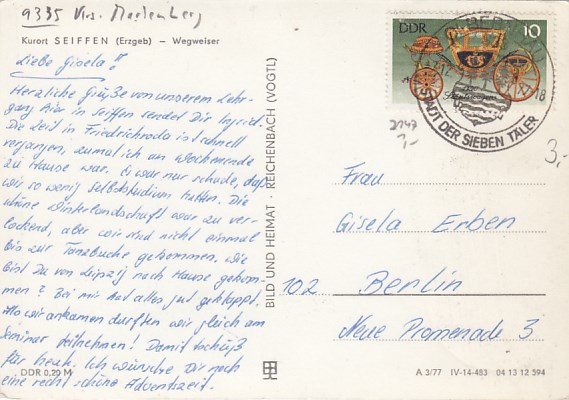 9335 Krs. Marienberg
Kurort SEIFFEN (Erzgeb) — Wegweiser
Liebe Gisela!!
Herzliche Grüße von unserem Lehr-
gang hier in Seiffen sendet Dir Ingrid.
Die Zeit in Friedrichroda ist schnell
vergangen, zumal ich am Wochenende
zu Hause war. Es war nur schade, daß
wir so wenig Selbststudium hatten. Die
schöne Winterlandschaft war zu ver-
lockend, aber wir sind nicht einmal
bis zur Tanzbuche gekommen. Wie
bist Du von Leipzig nach Hause gekom-
men? Bei mir hat alles gut geklappt.
Als wir ankamen durften wir gleich am
Seminar teilnehmen! Damit
für heute. Ich wünsche Dir noch
eine recht schöne Adventszeit.
DDR 0,20 M
BILD UND HEIMAT · REICHENBACH (VOGTL)
DDR
10
18
STADT DER SIEBEN TÄLER
2147
3,-
Frau
Gisela Erben
102 Berlin
Neue Promenade 3
A 3/77 IV-14-483 04 13 12 594